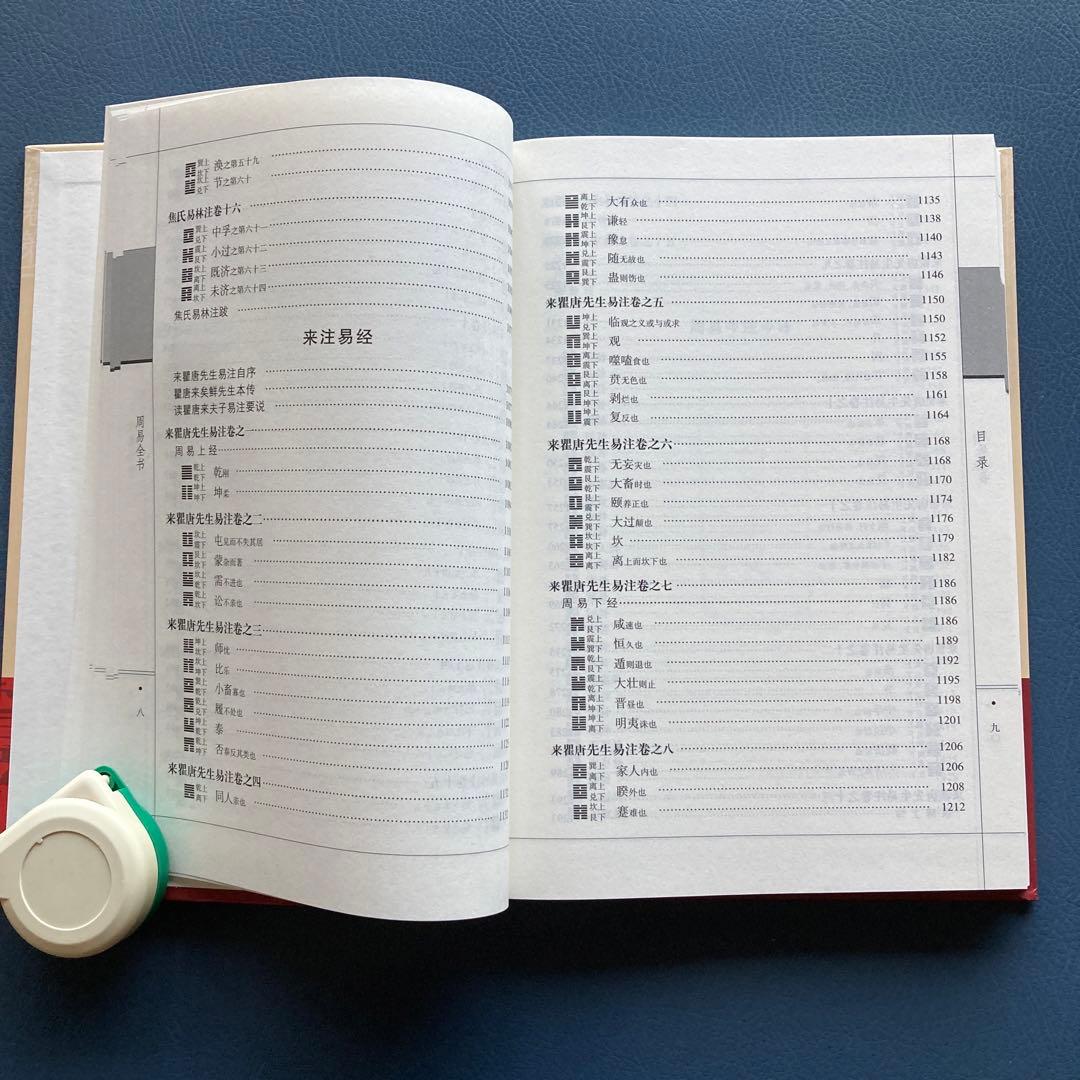 巽上坎下 涣之第五十九
坎上兑下 节之第六十
焦氏易林注卷十六
巽上兑下 中孚之第六十一
震上艮下 小过之第六十二
坎上离下 既济之第六十三
离上坎下 未济之第六十四
焦氏易林注跋
来注易经
来瞿唐先生易注自序
瞿唐来矣鲜先生本传
读瞿唐来夫子易注要说
来瞿唐先生易注卷之一
周易上经
乾上乾下 乾刚
坤上坤下 坤柔
来瞿唐先生易注卷之二
坎上震下 屯见而不失其居
艮上坎下 蒙杂而著
坎上乾下 需不进也
乾上坎下 讼不亲也
来瞿唐先生易注卷之三
坤上坎下 师忧
坎上坤下 比乐
巽上乾下 小畜寡也
乾上兑下 履不处也
坤上乾下 泰
乾上坤下 否泰反其类也
来瞿唐先生易注卷之四
乾上离下 同人亲也
周易全书
八
离上乾下 大有众也 1135
坤上艮下 谦轻 1138
震上坤下 豫怠 1140
兑上震下 随无故也 1143
艮上巽下 蛊则饬也 1146
来瞿唐先生易注卷之五 1150
坤上兑下 临观之义或与或求 1150
巽上坤下 观 1152
离上震下 噬嗑食也 1155
艮上离下 贲无色也 1158
艮上坤下 剥烂也 1161
坤上震下 复反也 1164
来瞿唐先生易注卷之六 1168
乾上震下 无妄灾也 1168
艮上乾下 大畜时也 1170
艮上震下 颐养正也 1174
兑上巽下 大过颠也 1176
坎上坎下 坎 1179
离上离下 离上面坎下也 1182
来瞿唐先生易注卷之七 1186
周易下经 1186
兑上艮下 咸速也 1186
震上巽下 恒久也 1189
乾上艮下 遁则退也 1192
震上乾下 大壮则止 1195
离上坤下 晋昼也 1198
坤上离下 明夷诛也 1201
来瞿唐先生易注卷之八 1206
巽上离下 家人内也 1206
离上兑下 睽外也 1208
坎上艮下 蹇难也 1212
目录
九